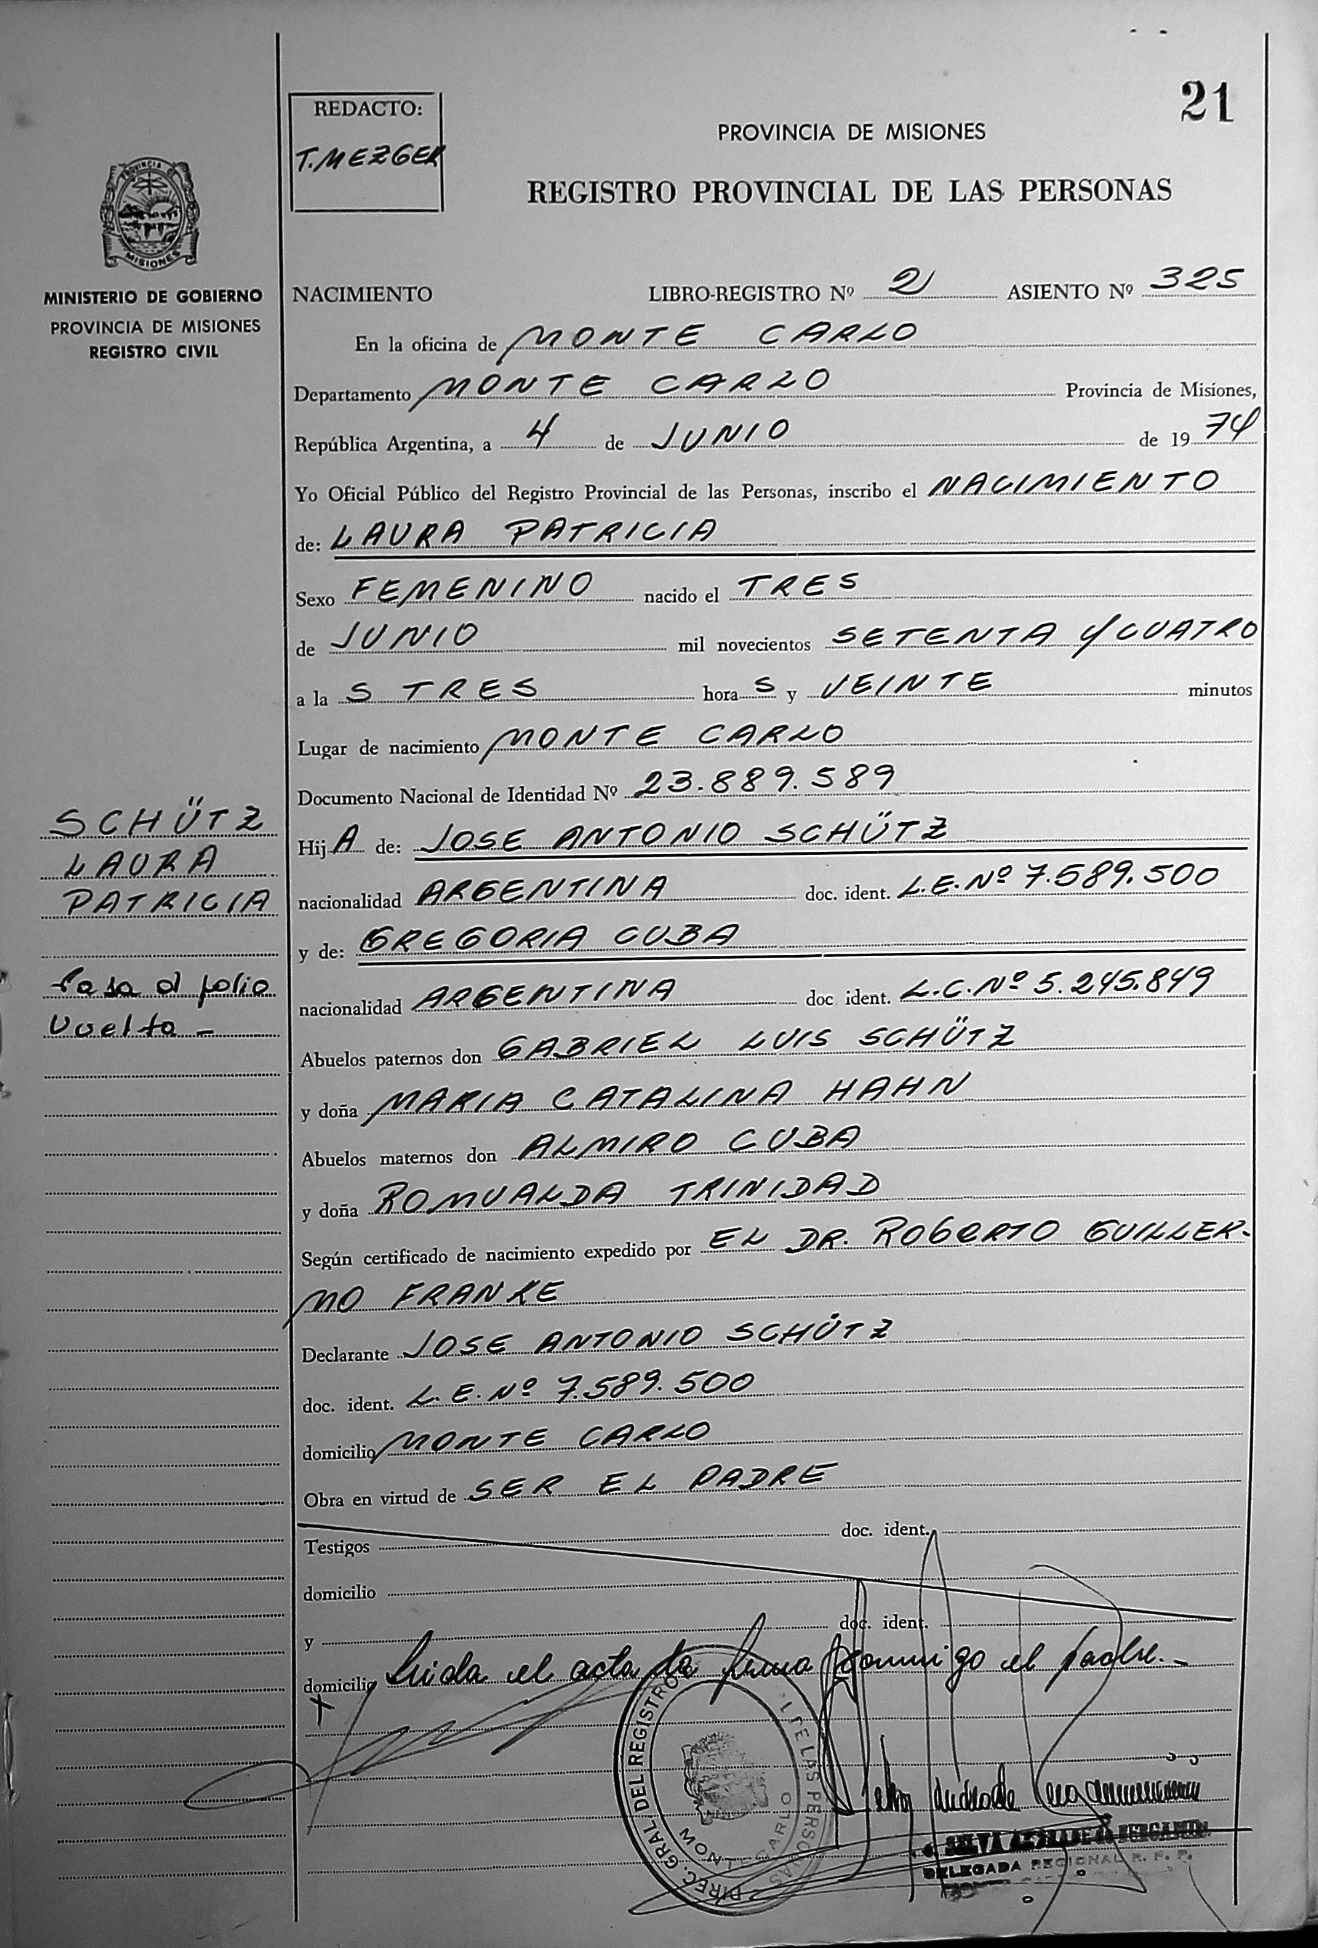 21
REDACTO:
T. MEZGER
PROVINCIA DE MISIONES
REGISTRO PROVINCIAL DE LAS PERSONAS
PROVINCIA DE
MISIONES
MINISTERIO DE GOBIERNO
PROVINCIA DE MISIONES
REGISTRO CIVIL
NACIMIENTO LIBRO-REGISTRO Nº 2 ASIENTO Nº 325
En la oficina de MONTE CARLO
Departamento MONTE CARLO Provincia de Misiones,
República Argentina, a 4 de JUNIO de 1974
Yo Oficial Público del Registro Provincial de las Personas, inscribo el NACIMIENTO
de: LAURA PATRICIA
Sexo FEMENINO nacido el TRES
de JUNIO mil novecientos SETENTA Y CUATRO
a la S TRES hora S y VEINTE minutos
Lugar de nacimiento MONTE CARLO
Documento Nacional de Identidad Nº 23.889.589
SCHÜTZ
LAURA
PATRICIA
Pasa al folio
Vuelta -
Hij A de: JOSE ANTONIO SCHÜTZ
nacionalidad ARGENTINA doc. ident. L.E. Nº 7.589.500
y de: GREGORIA CUBA
nacionalidad ARGENTINA doc ident. L.C. Nº 5.245.849
Abuelos paternos don GABRIEL LUIS SCHÜTZ
y doña MARIA CATALINA HAHN
Abuelos maternos don ALMIRO CUBA
y doña ROMUALDA TRINIDAD
Según certificado de nacimiento expedido por EL DR. ROBERTO GUILLER-
MO FRANKE
Declarante JOSE ANTONIO SCHÜTZ
doc. ident. L.E. Nº 7.589.500
domicilio MONTE CARLO
Obra en virtud de SER EL PADRE
Testigos doc. ident.
domicilio
y doc. ident.
domicilio Leida el acta la firma conmigo el padre.-
X
DIREC. GRAL DEL REGISTRO DE LAS PERSONAS
MONTECARLO
SELVA ANDRADE de BERGAMIN
DELEGADA REGIONAL R. P. P.